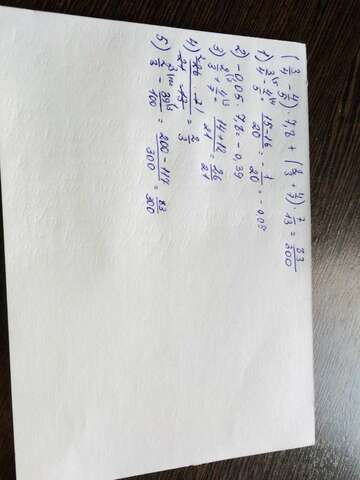 (3/4 - 4/5) · 7,8 + (2/3 + 4/7) · 7/13 = 83/300
1) 3/4 - 4/5 = 15-16/20 = - 1/20 = - 0,05
2) -0,05 · 7,8 = - 0,39
3) 2/3 + 4/7 = 14+12/21 = 26/21
4) 26/21 · 7/13 = 2/3
5) 2/3 - 39/100 = 200-117/300 = 83/300